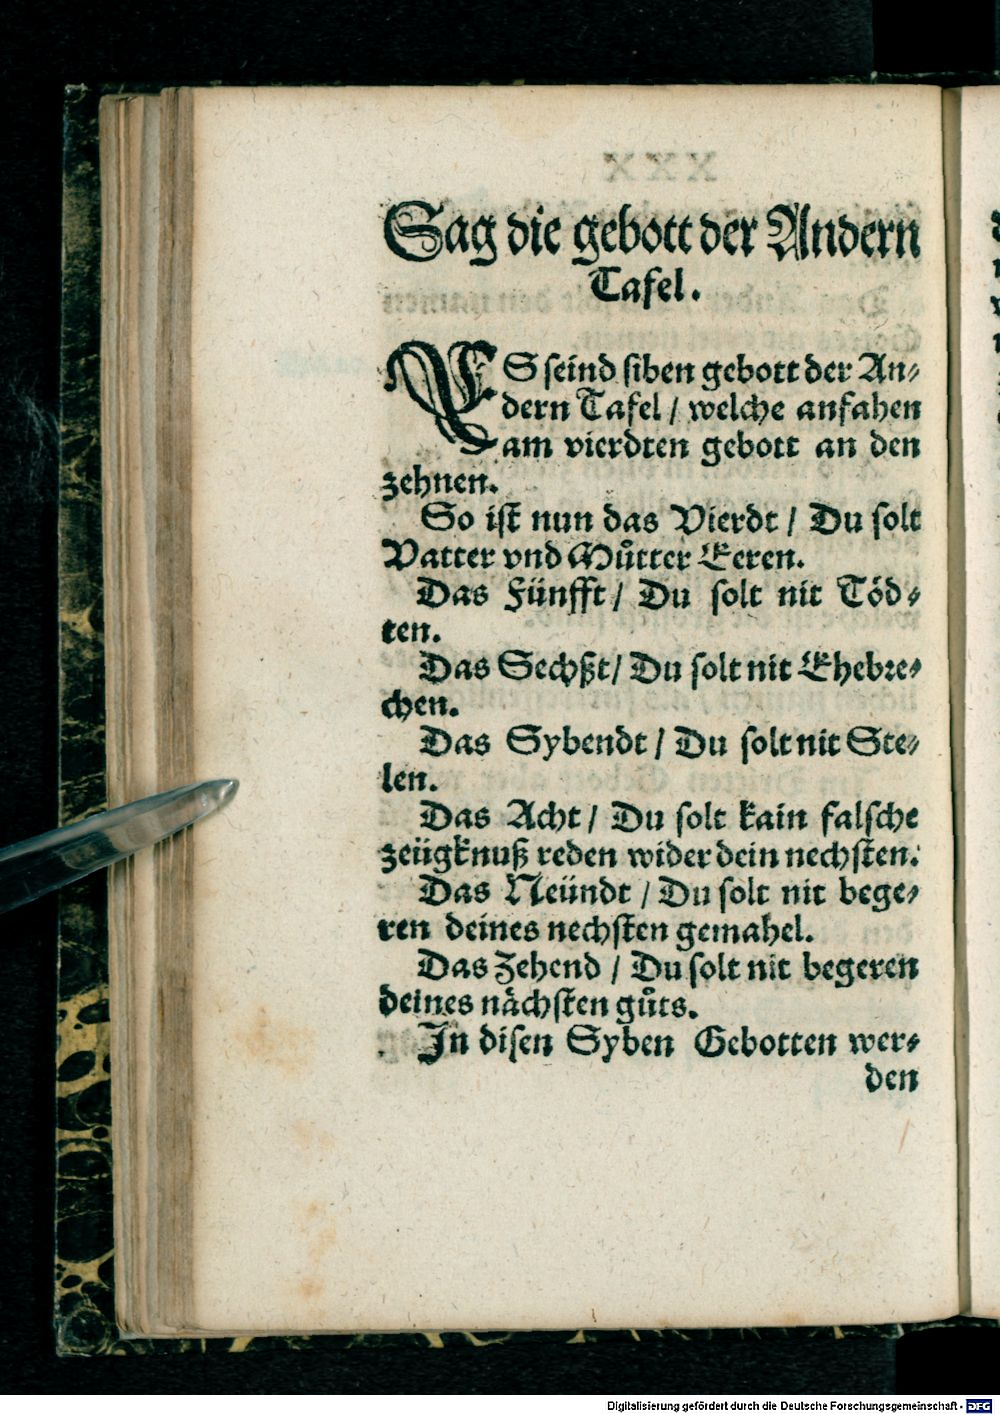 Sag die gebott der Andern
Tafel.
ES seind siben gebott der An⸗
dern Tafel / welche anfahen
am vierdten gebott an den
zehnen.
So ist nun das Vierdt / Du solt
Vatter vnd Můtter Eeren.
Das Fünfft / Du solt nit Töd⸗
ten.
Das Sechßt / Du solt nit Ehebre⸗
chen.
Das Sybendt / Du solt nit Ste⸗
len.
Das Acht / Du solt kain falsche
zeügknuß reden wider dein nechsten.
Das Neündt / Du solt nit bege⸗
ren deines nechsten gemahel.
Das Zehend / Du solt nit begeren
deines nächsten gůts.
In disen Syben Gebotten wer⸗
den
Digitalisierung gefördert durch die Deutsche Forschungsgemeinschaft - DFG